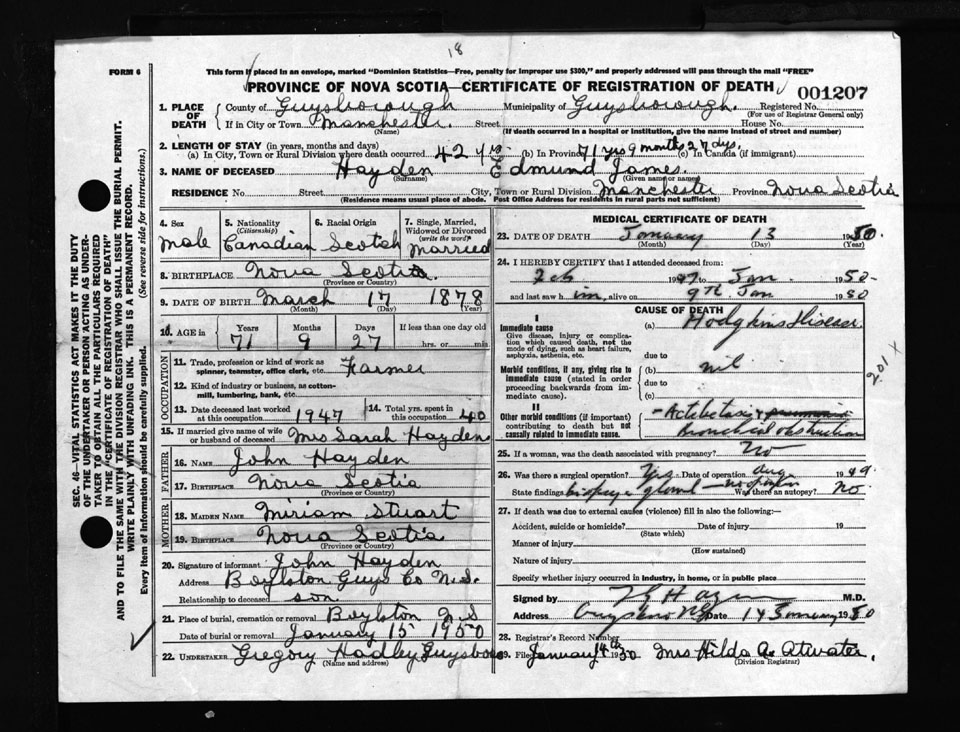 18
FORM 6
This form if placed in an envelope, marked "Dominion Statistics—Free, penalty for improper use $300," and properly addressed will pass through the mail "FREE"
PROVINCE OF NOVA SCOTIA—CERTIFICATE OF REGISTRATION OF DEATH
001207
1. PLACE OF DEATH { County of Guysborough Municipality of Guysborough. Registered No.
(For use of Registrar General only)
If in City or Town Manchester. Street House No.
(Name) (If death occurred in a hospital or institution, give the name instead of street and number)
2. LENGTH OF STAY (in years, months and days)
(a) In City, Town or Rural Division where death occurred 42 yrs. (b) In Province 71 yrs 9 months 27 dys. (c) In Canada (if immigrant)
3. NAME OF DECEASED Hayden Edmund James.
(Surname) (Given name or names)
RESIDENCE No. Street City, Town or Rural Division Manchester Province Nova Scotia
(Residence means usual place of abode. Post Office Address for residents in rural parts not sufficient)
4. Sex
Male
5. Nationality
(Citizenship)
Canadian
6. Racial Origin
Scotch
7. Single, Married, Widowed or Divorced
(write the word)
Married
8. BIRTHPLACE Nova Scotia
(Province or Country)
9. DATE OF BIRTH March 17 1878
(Month) (Day) (Year)
10. AGE in Years Months Days If less than one day old
71 9 27 hrs. or min.
OCCUPATION
11. Trade, profession or kind of work as spinner, teamster, office clerk, etc. Farmer
12. Kind of industry or business, as cotton-mill, lumbering, bank, etc.
13. Date deceased last worked at this occupation 1947
14. Total yrs. spent in this occupation 40
15. If married give name of wife or husband of deceased Mrs Sarah Hayden
FATHER
16. NAME John Hayden
17. BIRTHPLACE Nova Scotia
(Province or Country)
MOTHER
18. MAIDEN NAME Miriam Stuart
19. BIRTHPLACE Nova Scotia
(Province or Country)
20. Signature of informant John Hayden
Address Boylston Guys Co N.S.
Relationship to deceased son
21. Place of burial, cremation or removal Boylston N.S
Date of burial or removal January 15 1950
22. UNDERTAKER Gregory Hadley Guysboro
(Name and address)
MEDICAL CERTIFICATE OF DEATH
23. DATE OF DEATH January 13 1950.
(Month) (Day) (Year)
24. I HEREBY CERTIFY that I attended deceased from:
Feb 1947 to Jan 1950
and last saw him, alive on 9th Jan 1950
CAUSE OF DEATH
I
Immediate cause
Give disease, injury or complication which caused death, not the mode of dying, such as heart failure, asphyxia, asthenia, etc.
(a) Hodgkins Disease.
due to
Morbid conditions, if any, giving rise to immediate cause (stated in order proceeding backwards from immediate cause).
(b) nil
due to
(c)
201 X
II
Other morbid conditions (if important) contributing to death but not causally related to immediate cause.
Bronchial obstruction
25. If a woman, was the death associated with pregnancy? No
26. Was there a surgical operation? Yes Date of operation Aug 1949
State findings biopsy gland Was there an autopsy? No.
27. If death was due to external causes (violence) fill in also the following:—
Accident, suicide or homicide? Date of injury 19
(State which)
Manner of injury
(How sustained)
Nature of injury
Specify whether injury occurred in industry, in home, or in public place
Signed by M.D.
Address Guysboro NS Date 14 January 1950
28. Registrar's Record Number
29. Filed January 14th 1950 Mrs Hilda A. Atwater.
(Division Registrar)
SEC. 46—VITAL STATISTICS ACT MAKES IT THE DUTY
OF THE UNDERTAKER OR PERSON ACTING AS UNDER-
TAKER TO OBTAIN ALL THE PARTICULARS REQUIRED
IN THE "CERTIFICATE OF REGISTRATION OF DEATH"
AND TO FILE THE SAME WITH THE DIVISION REGISTRAR WHO SHALL ISSUE THE BURIAL PERMIT.
WRITE PLAINLY WITH UNFADING INK. THIS IS A PERMANENT RECORD.
Every item of information should be carefully supplied. (See reverse side for instructions.)